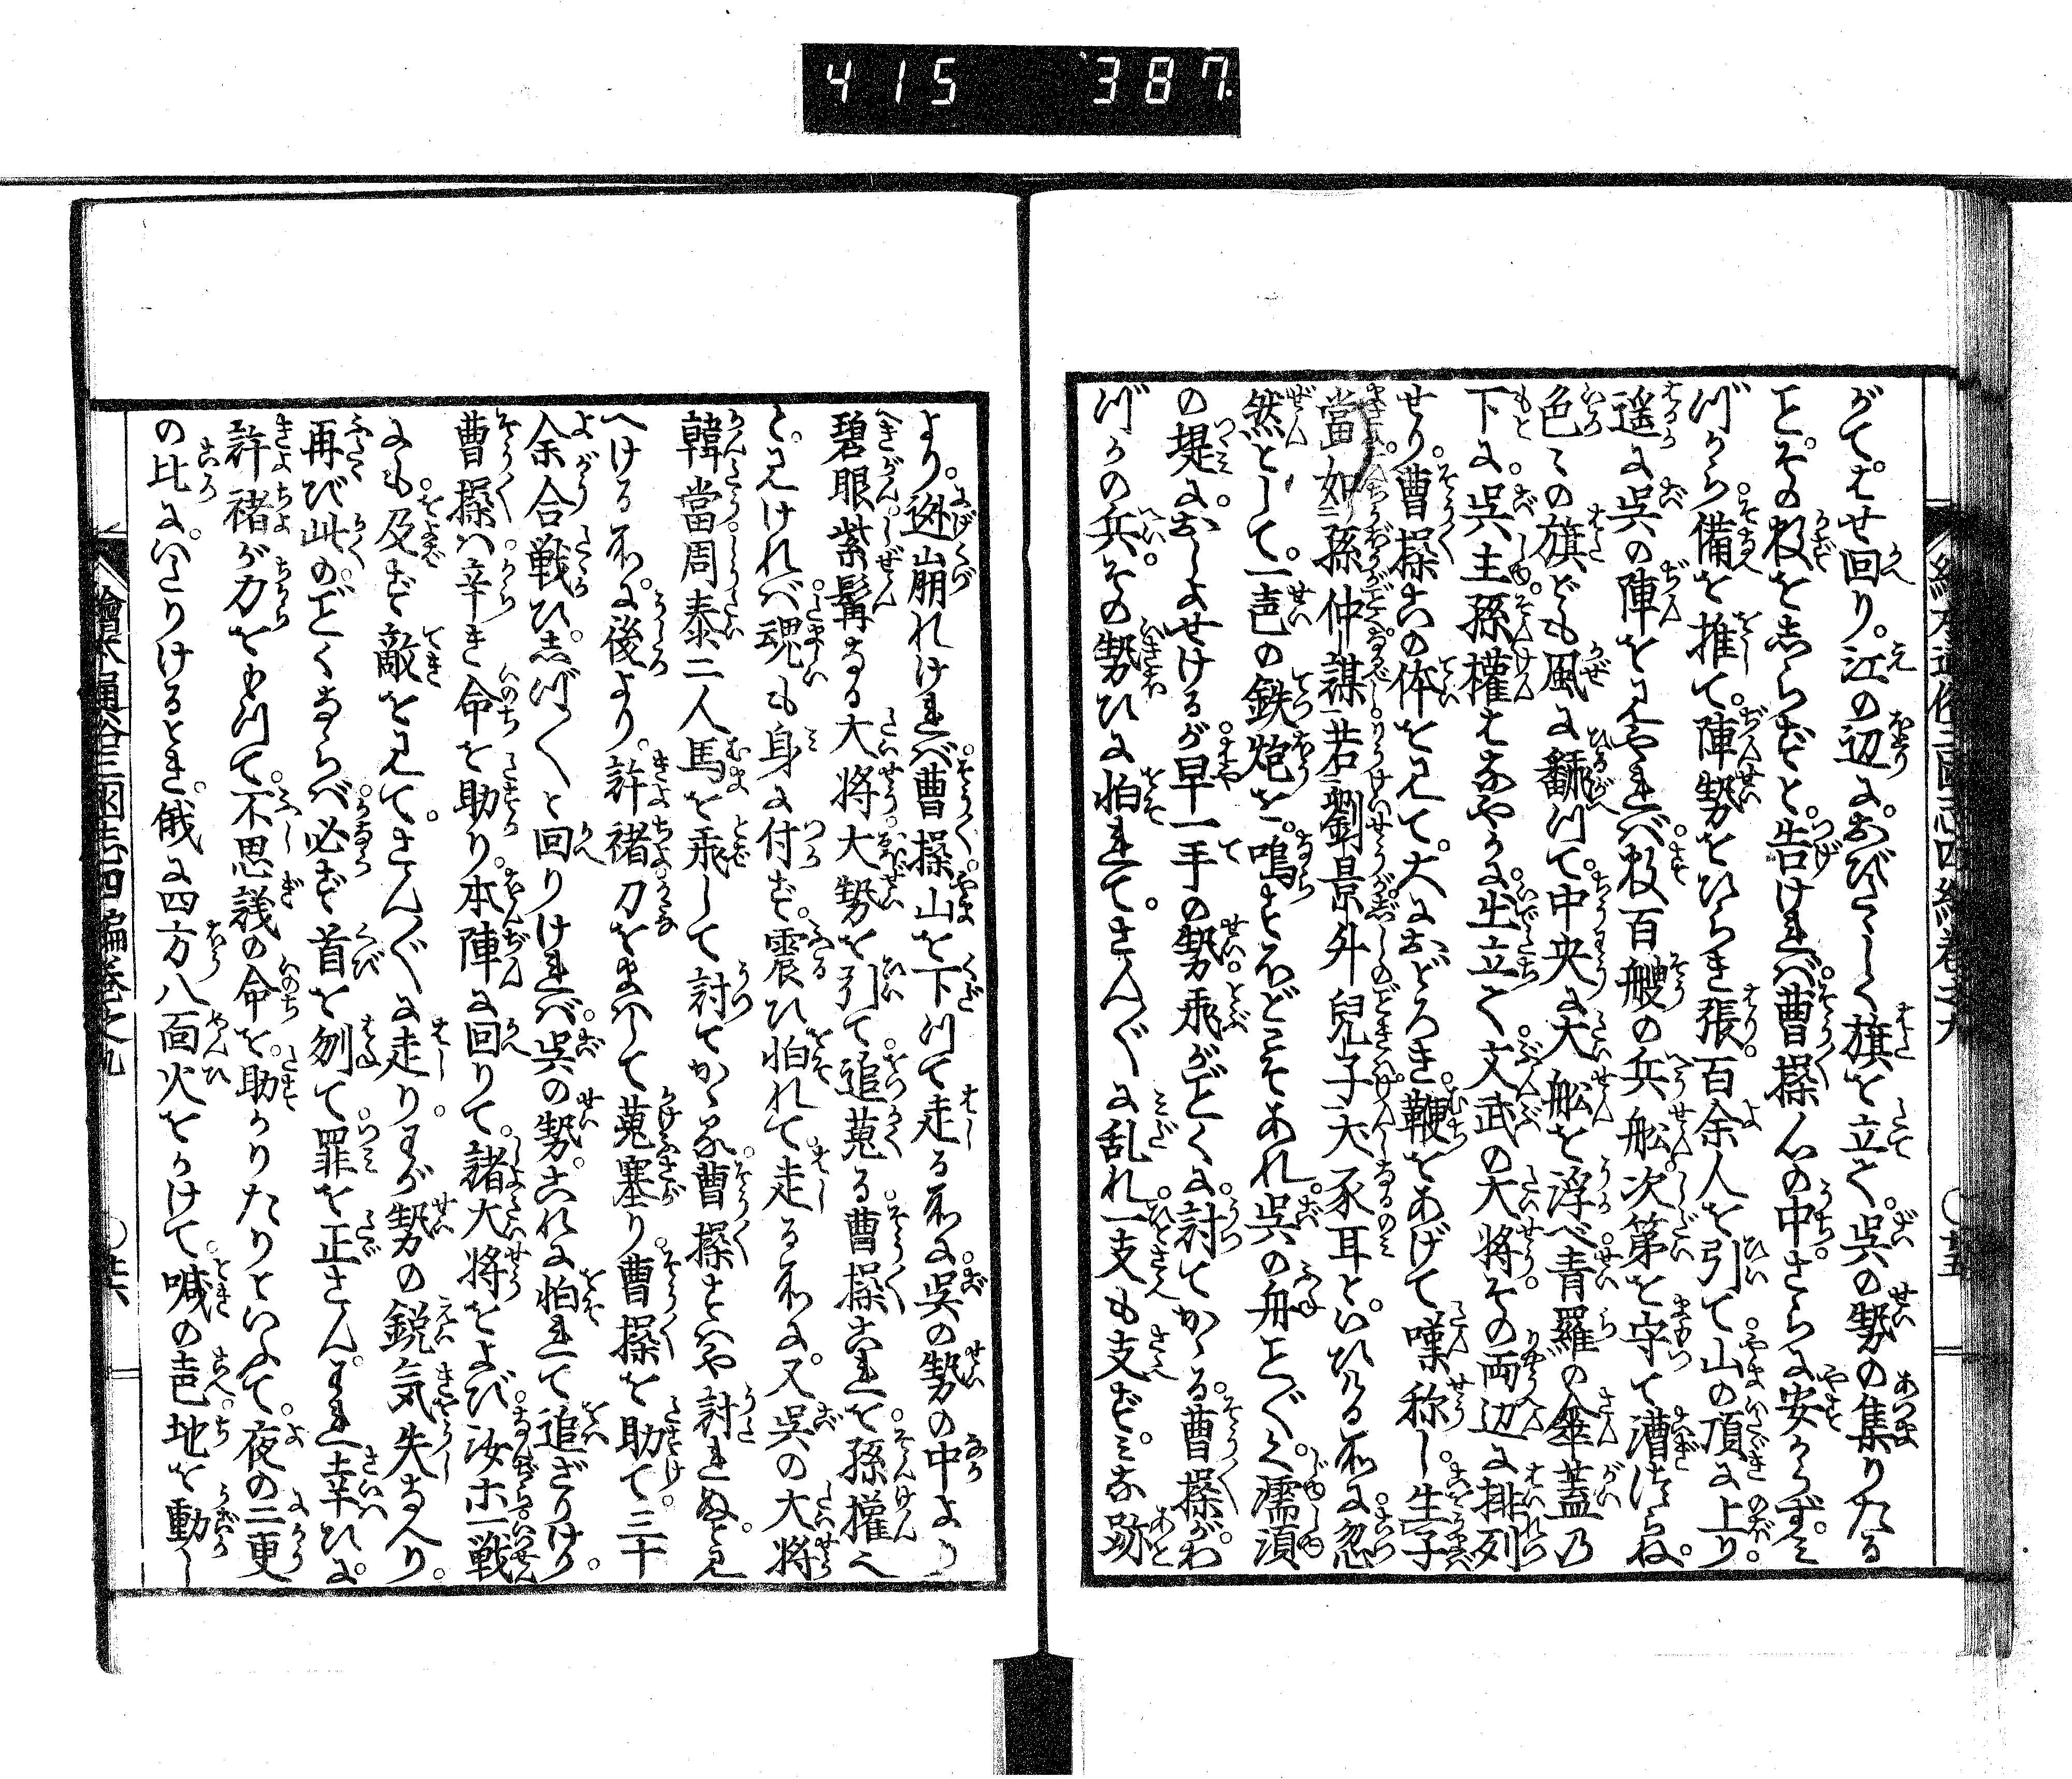 415 387
がて。はせ回り。江の辺に。おびたゝしく旗を立て。呉の勢の集りたる
こと。その数をしらずと。告けれバ。曹操心の中。さらに安からず。ミ
づから備を推て。陣勢をひらき。張百余人を引て。山の頂に上り。
遥に呉の陣を見やれバ。数百艘の兵舩。次第を守て漕つらね。
色〻の旗ども風に飜つて。中央に大舩を浮べ。青羅の傘蓋の
下に。呉主孫權はなやかに出立て。文武の大将その両辺に排列
せり。曹操この体を見て。大におどろき。鞭をあげて嘆称し。生子
當如孫仲謀。若劉景升兒子犬豕耳と。いひける所に。忽
然として。一声の鉄炮を。鳴すとひとしくこそあれ。呉の舟ことごとく。濡湏
の堤に。おしよせけるが。早一手の勢。飛がごとくに討てかゝる。曹操が
づかの兵。その勢ひに怕れて。さんぐに乱れ。一支も支ず。ミな跡
より。迯崩れけれバ。曹操。山を下つて走る所に。呉の勢の中より
碧眼紫髯なる大将。大勢を引て。追蒐る。曹操これを。孫權
と。見けれバ。魂も身に付ず。震ひ怕れて。走る所に。又呉の大将
韓當周泰二人。馬を飛して討てかゝる。曹操すハや討れぬと見
へける所に。後より。許褚刀をまハして蒐塞り。曹操を助て。三十
余合戦ひ。しづ〳〵と回りけれバ。呉の勢。これに怕れて追ざりけり。
曹操ハ辛き命を助り。本陣に回りて。諸大将をよび。汝ホ一戦
にも。及ず敵を見て。さんぐに走り。わが勢の鋭気失なへり。
再び此のごとくならバ。必ず首を刎て罪を正さん。われ幸ひに。
許褚が力をもつて。不思議の命を。助かりたりといふて。夜の二更
の比に。いたりけるとき。俄に四方八面火をかけて。喊の声地を動し
繪本通俗三國志四編巻之九 〇廿六